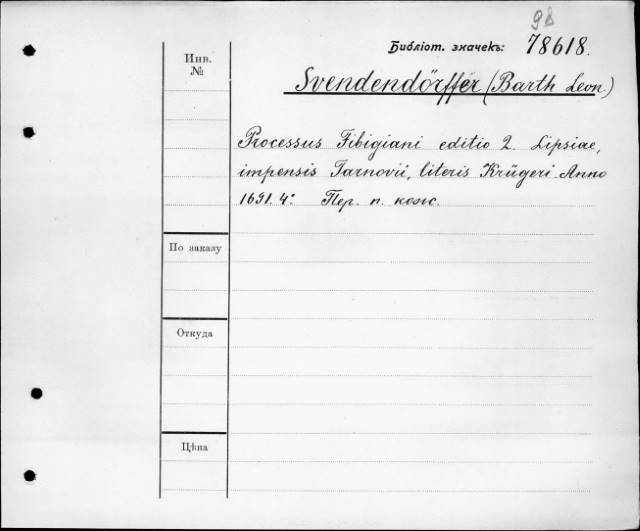 98
Библіот. значекъ: 78618.
Инв.
№
Svendendörffer (Barth Leon)
Processus Fibigiani editio 2. Lipsiae,
impensis Tarnovii, literis Krügeri. Anno
1691. 4°. Пер. п. кож.
По заказу
Откуда
Цѣна